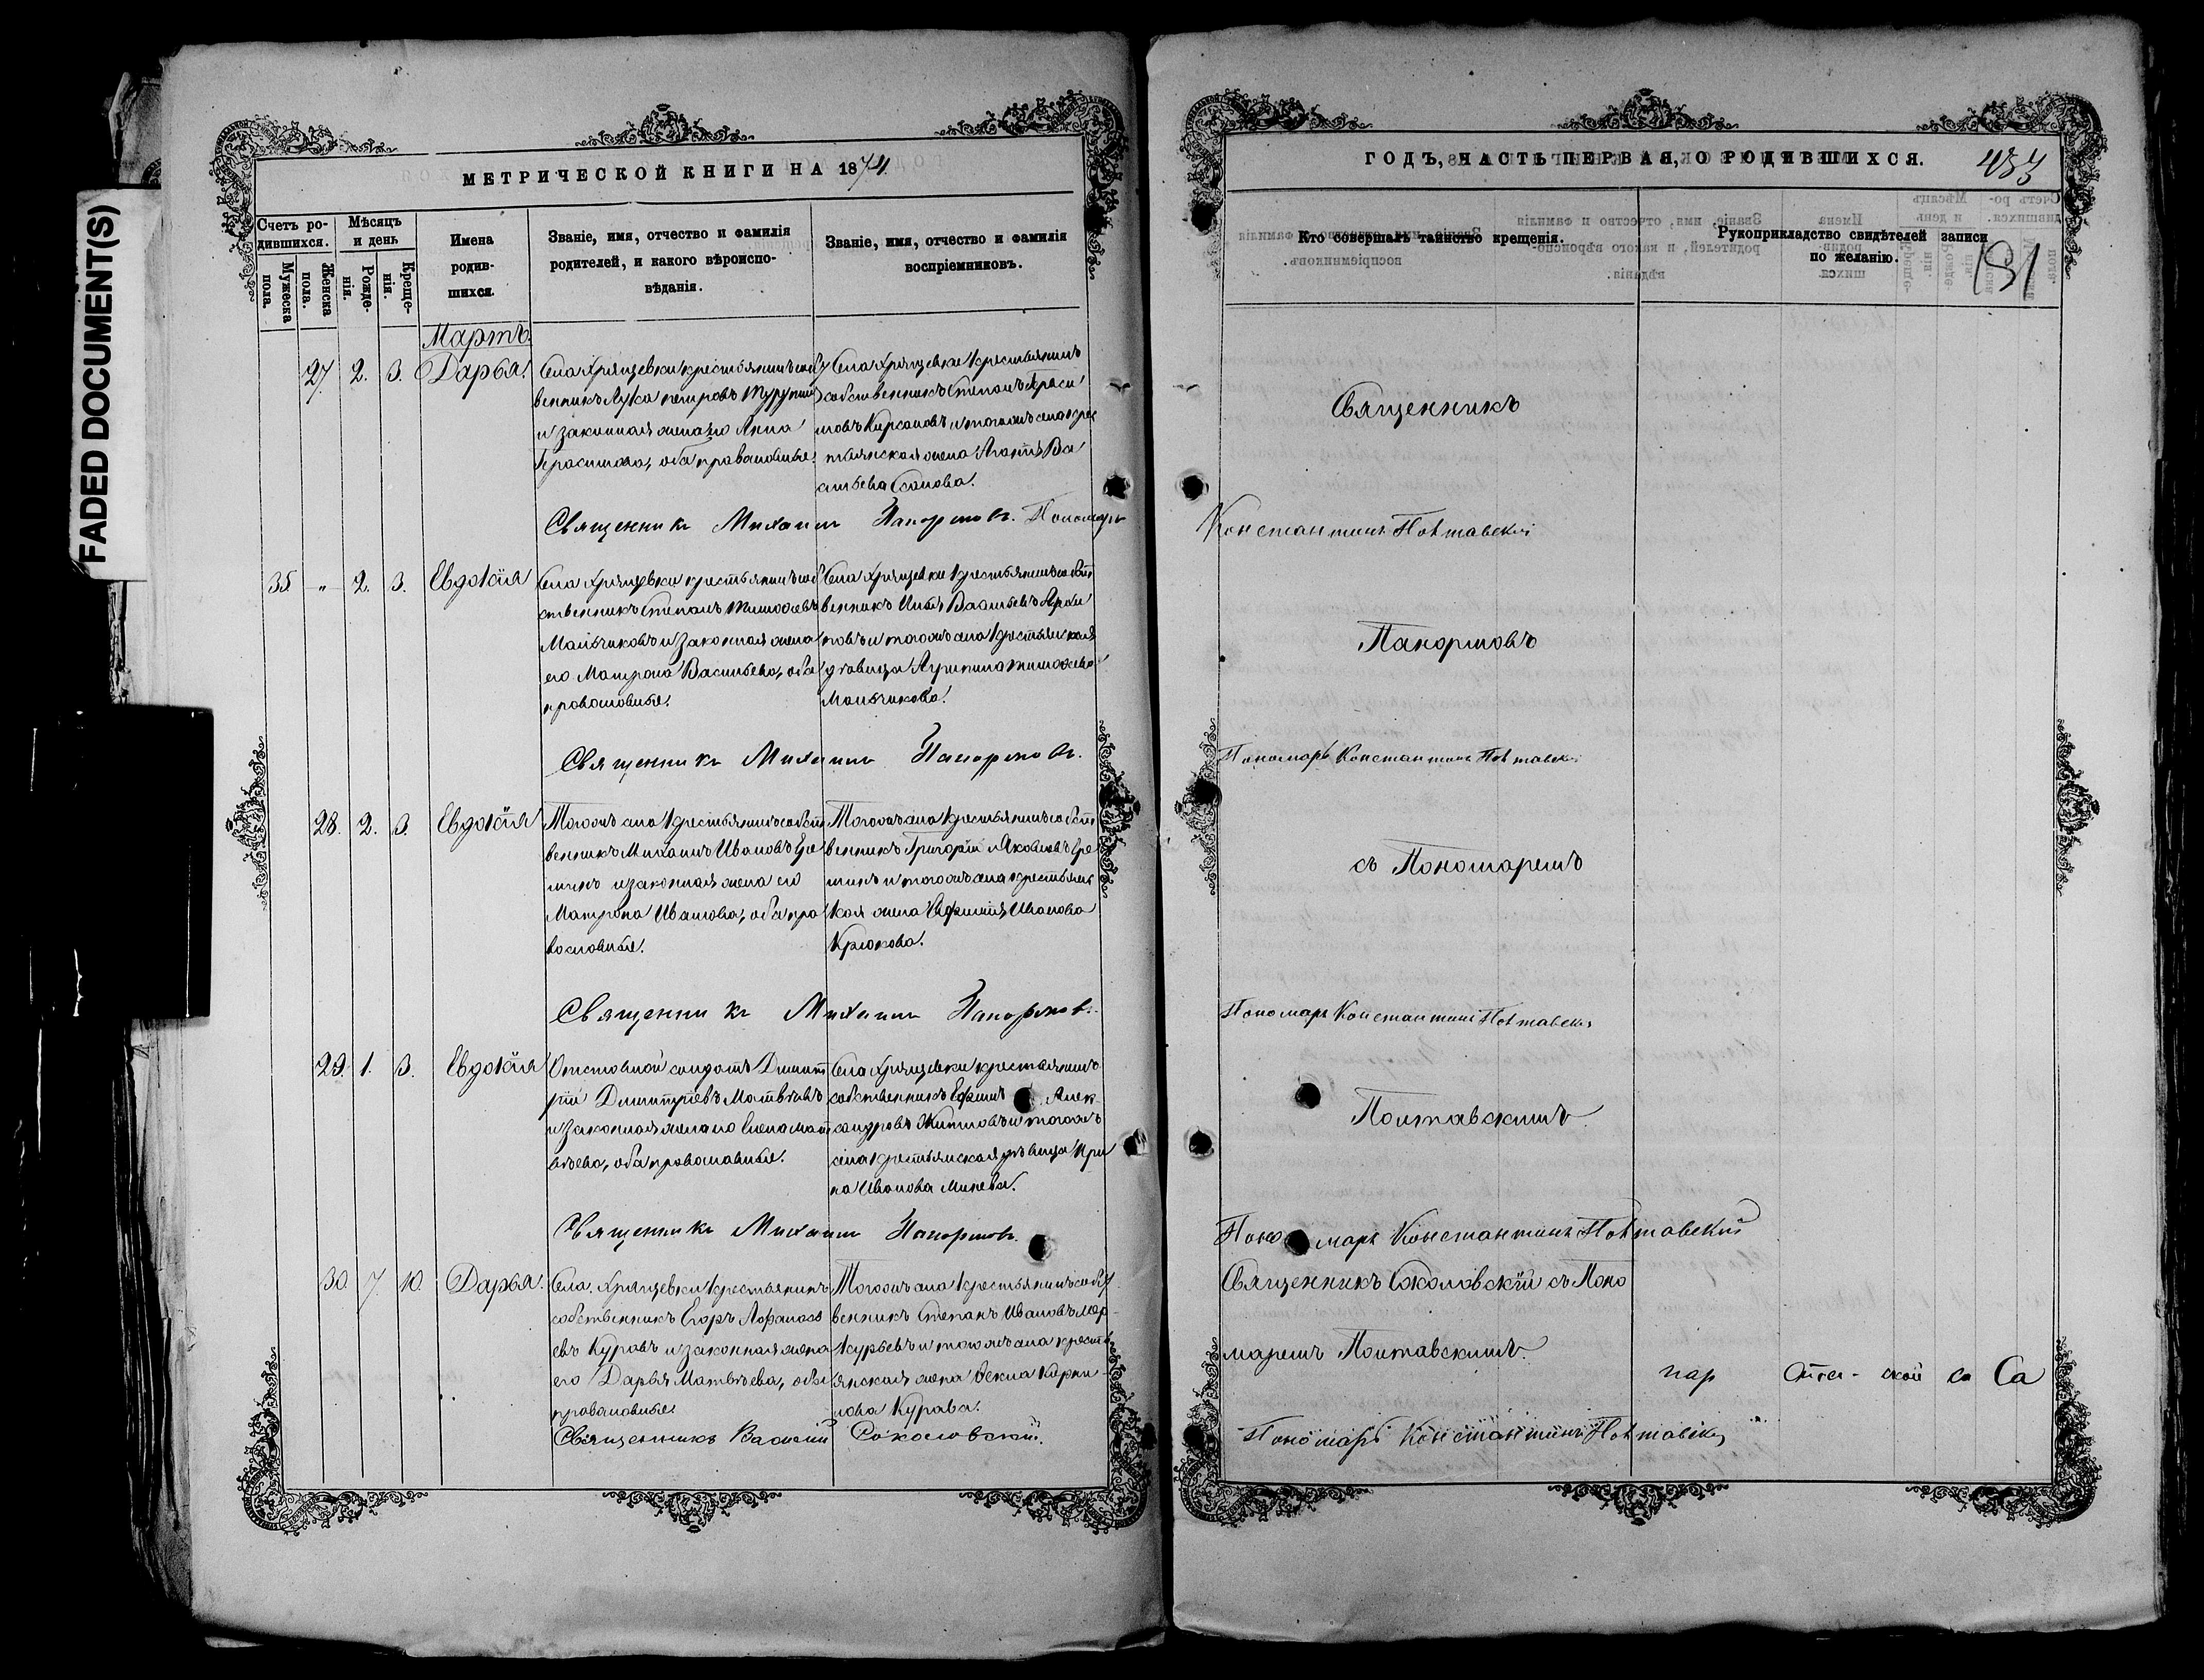 FADED DOCUMENT(S)
МЕТРИЧЕСКОЙ КНИГИ НА 1874
Счетъ ро-
дившихся.
Мужеска
пола.
Женска
пола.
Мѣсяцъ
и день
Рожде-
нія.
Креще-
нія.
Имена
родив-
шихся.
Званіе, имя, отчество и фамилія
родителей, и какого вѣроиспо-
вѣданія.
Званіе, имя, отчество и фамилія
воспріемниковъ.
Мартъ.
27. 2. 3. Дарья.
Села Хрящевки крестьянинъ собст
венникъ Лука Петровъ
и законная жена его Анна
Герасимова, оба православные.
Села Хрящевки крестьянинъ
собственникъ Степанъ Гераси
мовъ Кирсановъ и тогожъ села крес
тьянская жена Агафія Ва
сильева
Священникъ Михаилъ Панормовъ. Пономарь
35. " 2. 3. Евдокія
Села Хрящевки крестьянинъ соб
ственникъ Степанъ Тимофеевъ
Мальчиковъ и законная жена
его Матрона Васильева, оба
православные.
Села Хрящевки крестьянинъ собст
венникъ Илья Васильевъ Архи
повъ и тогожъ села крестьянская
дѣвица Агрипина Тимофеева
Мальчикова.
Священникъ Михаилъ Панормовъ.
28. 2. 3. Евдокія
Тогожъ села крестьянинъ собст
венникъ Михаилъ Ивановъ Ере
минъ и законная жена его
Матрона Иванова, оба пра
вославные.
Тогожъ села крестьянинъ собст
венникъ Григорій Яковлевъ Ере
минъ и тогожъ села крестьянс
кая жена Евфимія Иванова
Крюкова.
Священникъ Михаилъ Панормовъ.
29. 1. 3. Евдокія
Отставной солдатъ Димит
рій Димитріевъ Матвѣевъ
и законная жена его Елена Мат
вѣева, оба православные.
Села Хрящевки крестьянинъ
собственникъ Ефимъ Алек
сандровъ и тогожъ
села крестьянская дѣвица Ири
на Иванова Минеева.
Священникъ Михаилъ Панормовъ.
30. 7. 10. Дарья.
Села Хрящевки крестьянинъ
собственникъ Егоръ Афанась
евъ Куровъ и законная жена
его Дарья Матвѣева, оба
православные.
Тогожъ села крестьянинъ собст
венникъ Степанъ Ивановъ Мер
курьевъ и тогожъ села кресть
янская жена Фекла Корни
лова Курова.
Священникъ Василій Соколовскій.
ГОДЪ, ЧАСТЬ ПЕРВАЯ, О РОДИВШИХСЯ.
Кто совершалъ таинство крещенія.
Рукоприкладство свидѣтелей записи
по желанію.
Священникъ
Константинъ Полтавскій
Панормовъ
Пономарь Константинъ Полтавскій
съ Пономаремъ
Пономарь Константинъ Полтавскій
Полтавскимъ.
Пономарь Константинъ Полтавскій
Священникъ Соколовскій съ Поно
маремъ Полтавскимъ.
Са
Пономарь Константинъ Полтавскій